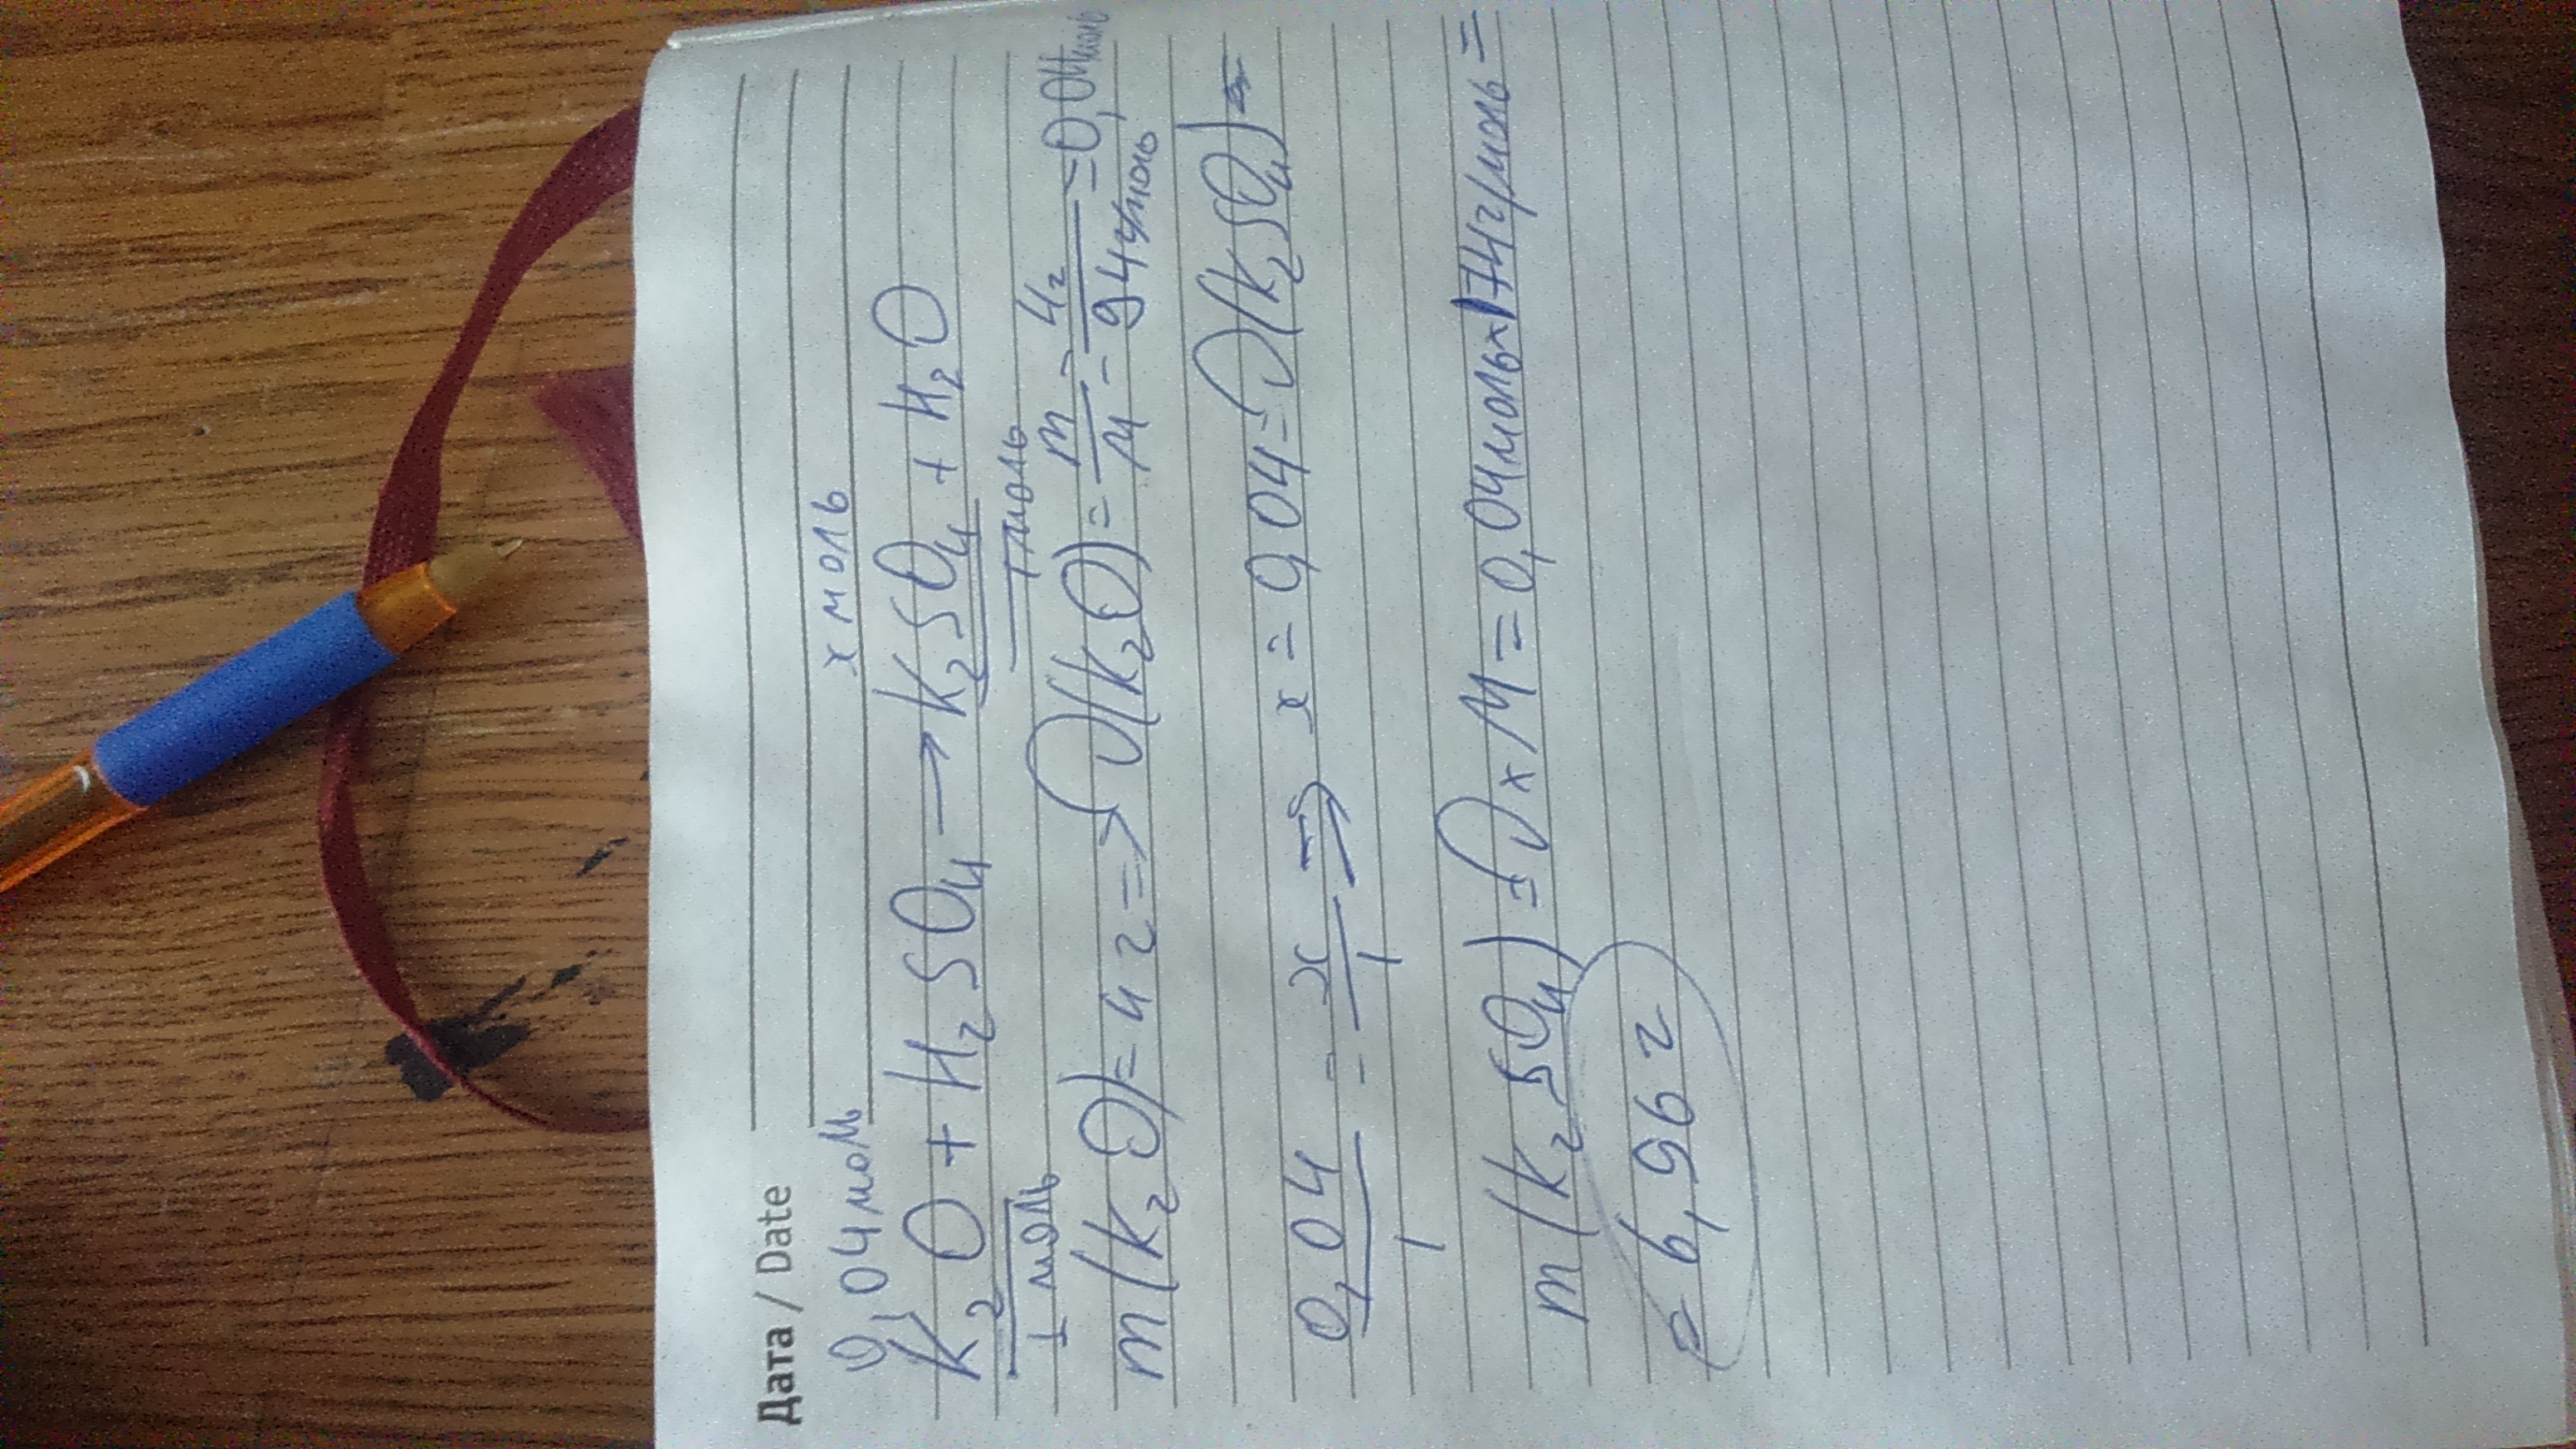 Дата / Date
0,04 моль х моль
K₂O + H₂SO₄ → K₂SO₄ + H₂O
1 моль 1 моль
m(K₂O) = 4 г ⇒ ν(K₂O) = m/M = 4г/94г/моль = 0,04 моль
0,04/1 = x/1 ⇒ x = 0,04 = ν(K₂SO₄)
m(K₂SO₄) = ν × M = 0,04 моль × 174 г/моль =
= 6,96 г